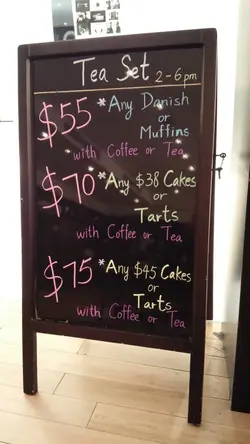 Tea Set 2-6pm
$55 *Any Danish
or
Muffins
with Coffee or Tea
$70 *Any $38 Cakes
or
Tarts
with Coffee or Tea
$75 *Any $45 Cakes
or
Tarts
with Coffee or Tea